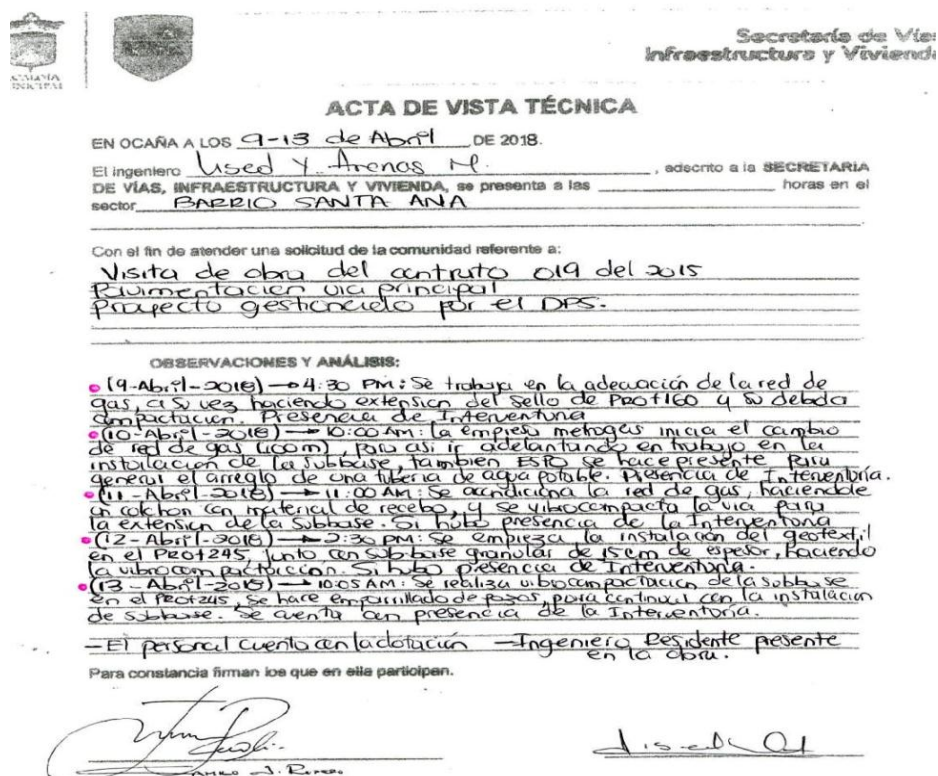 Secretaría de Vías
Infraestructura y Vivienda
ACTA DE VISTA TÉCNICA
EN OCAÑA A LOS 9-13 de Abril DE 2018.
El ingeniero Lised Y. Arenas M. , adscrito a la SECRETARIA
DE VÍAS, INFRAESTRUCTURA Y VIVIENDA, se presenta a las horas en el
sector BARRIO SANTA ANA
Con el fin de atender una solicitud de la comunidad referente a:
Visita de obra del contrato 019 del 2015
Pavimentación vía principal
Proyecto gestionado por el DPS.
OBSERVACIONES Y ANÁLISIS:
(9-Abril-2018) → 4:30 PM: Se trabaja en la adecuación de la red de
gas, a su vez haciendo extensión del sello de PR0+160 y su debida
compactación. Presencia de Interventoria
(10-Abril-2018) → 10:00 AM: la empresa metrogas inicia el cambio
de red de gas (100m), para así ir adelantando en trabajo en la
instalación de la subbase, también ESPO se hace presente para
general el arreglo de una tubería de agua potable. Presencia de Interventoría.
(11-Abril-2018) → 11:00 AM: Se acondiciona la red de gas, haciendole
un colchon con material de recebo, y se vibrocompacta la vía para
la extensión de la subbase. Si hubo presencia de la Interventoria
(12-Abril-2018) → 2:30 PM: Se empieza la instalación del geotextil
en el PR0+245, junto con subbase granular de 15cm de espesor, haciendo
la vibrocompactación. Si hubo presencia de Interventoria.
(13-Abril-2018) → 10:05 AM: Se realiza vibrocompactación de la subbase
en el PR0+245, se hace emparrillado de pozos, para continuar con la instalación
de subbase. Se cuenta con presencia de la Interventoría.
- El personal cuenta con la dotación - Ingeniero Residente presente
en la obra.
Para constancia firman los que en ella participan.